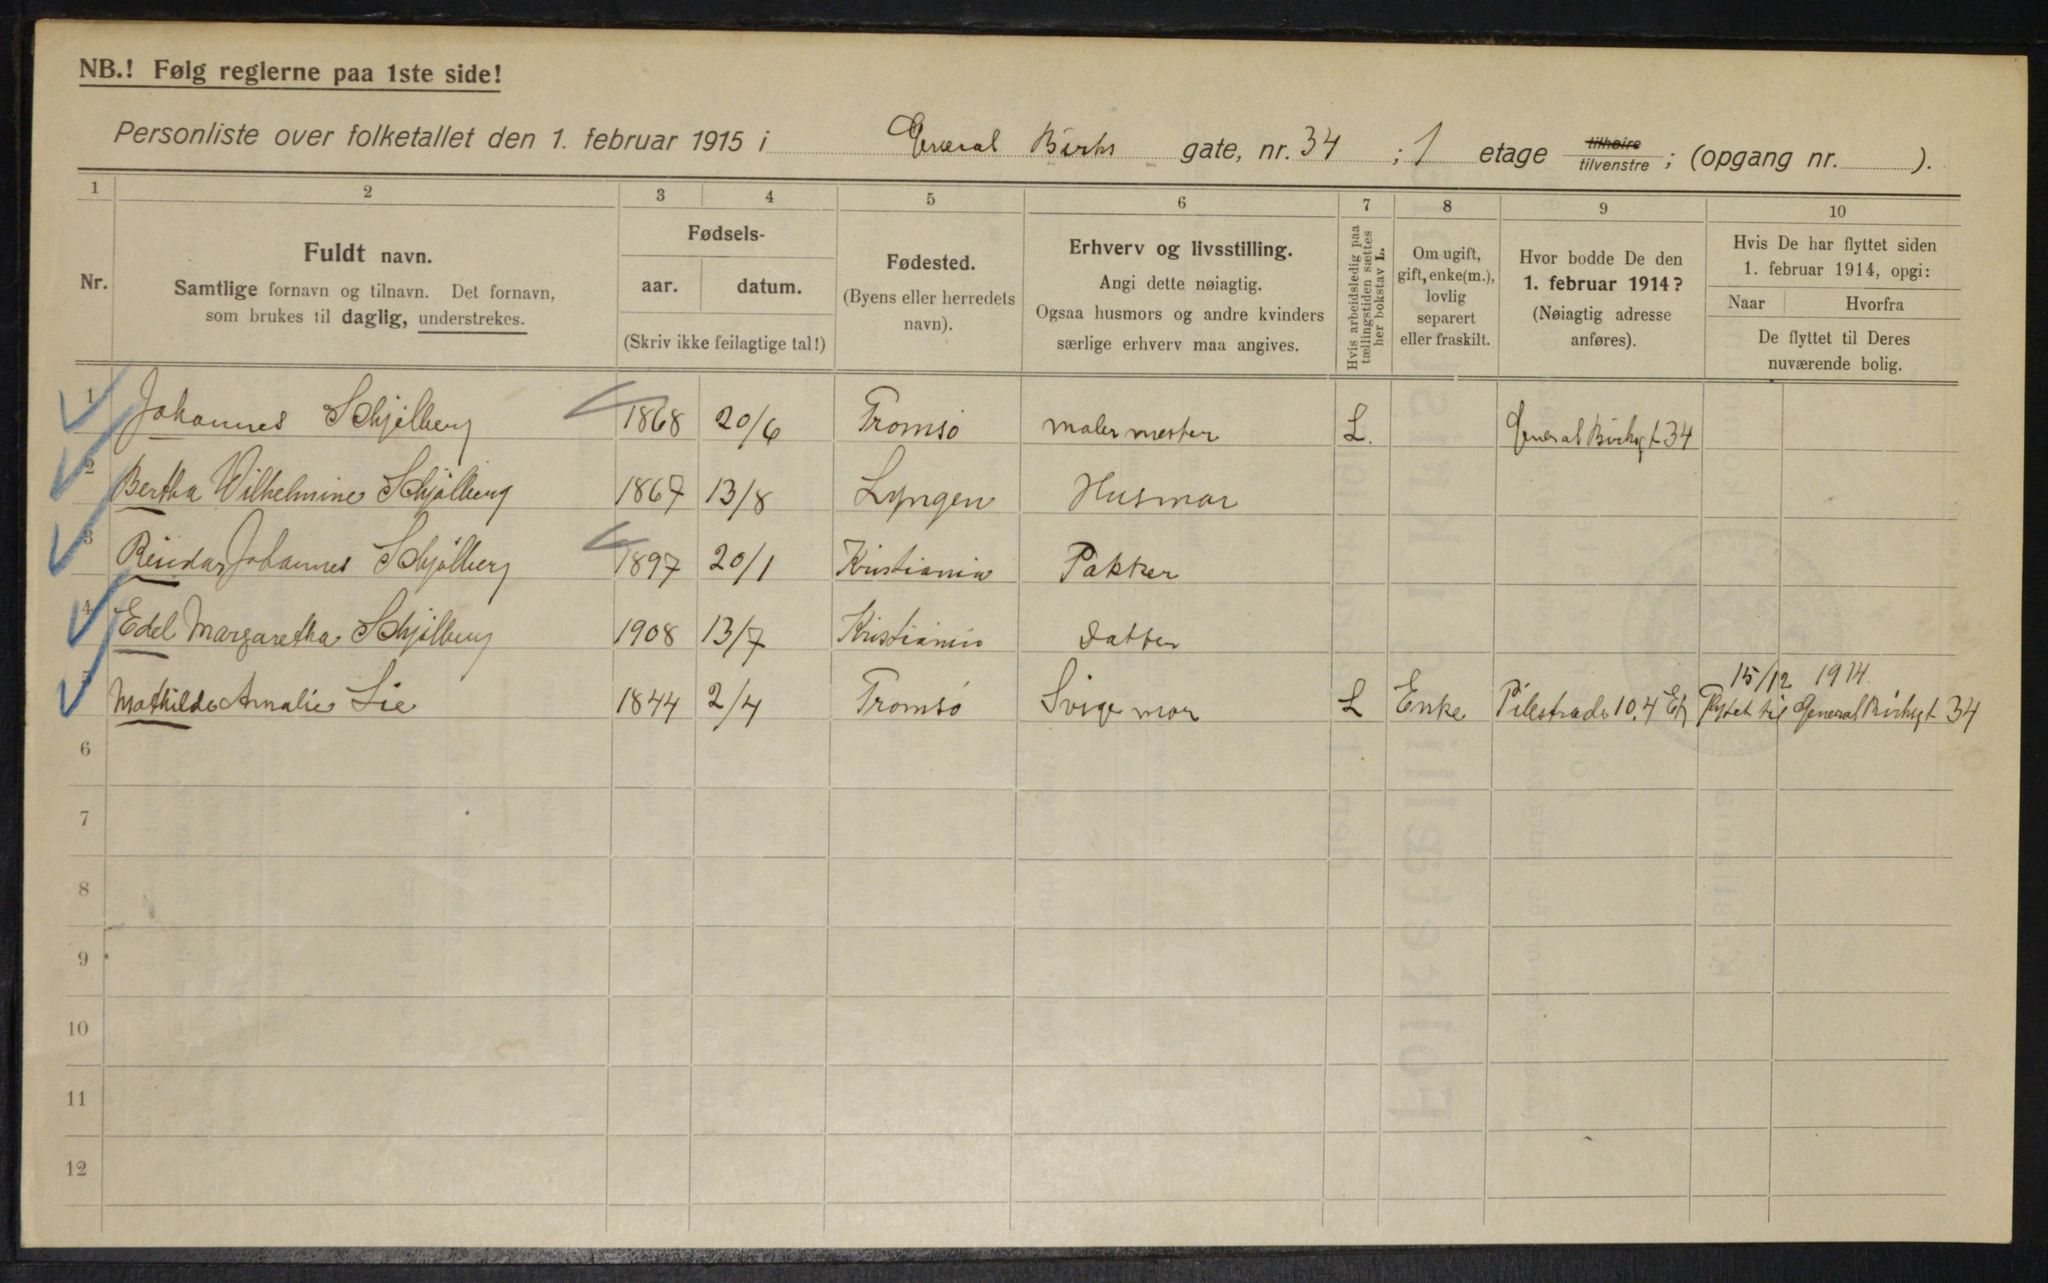 NB.! Følg reglerne paa 1ste side!
Personliste over folketallet den 1. februar 1915 i General Birks gate, nr. 34 ; 1 etage tilhøire tilvenstre ; (opgang nr. ).
1 2 3 4 5 6 7 8 9 10
Nr.
Fuldt navn.
Samtlige fornavn og tilnavn. Det fornavn,
som brukes til daglig, understrekes.
Fødsels-
aar. datum.
(Skriv ikke feilagtige tal!)
Fødested.
(Byens eller herredets
navn).
Erhverv og livsstilling.
Angi dette nøiagtig.
Ogsaa husmors og andre kvinders
særlige erhverv maa angives.
Hvis arbeidsledig paa
tællingstiden sættes
her bokstav L.
Om ugift,
gift, enke(m.),
lovlig
separert
eller fraskilt.
Hvor bodde De den
1. februar 1914?
(Nøiagtig adresse
anføres).
Hvis De har flyttet siden
1. februar 1914, opgi:
Naar Hvorfra
De flyttet til Deres
nuværende bolig.
1 Johannes Schjølberg 1868 20/6 Tromsø malermester L. General Birksgt 34
2 Bertha Wilhelmine Schjølberg 1867 13/8 Lyngen Husmor
3 Reidar Johannes Schjølberg 1897 20/1 Kristiania Pakker
4 Edel Margaretha Schjølberg 1908 13/7 Kristiania datter
15/12 1914.
5 Mathilde Amalie Lie 1844 2/4 Tromsø Svigemor L Enke Pilestrade 10.4 Et Flytet til General Birksgt 34
6
7
8
9
10
11
12